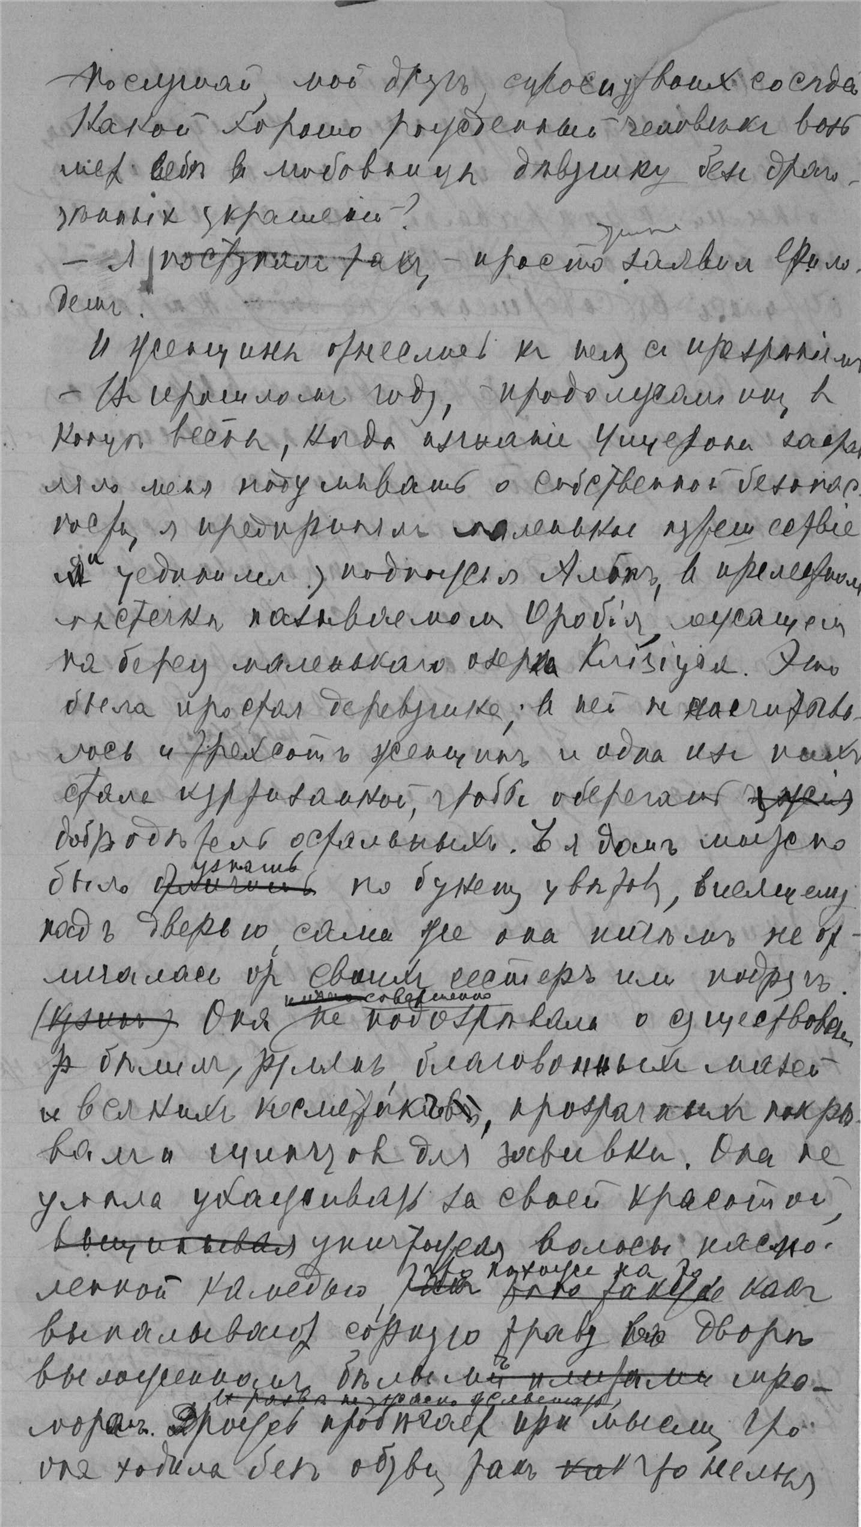 Послушай, мой другъ, спроси у твоихъ соседей
Какой хорошо рожденный человѣкъ возь
метъ себѣ в любовницы дѣвушку безъ драго-
цѣнныхъ украшений?
— Я поступилъ такъ, — просто заявилъ Фило-
демъ.
И женщины отнеслись къ нему съ презрѣніемъ
— Въ прошломъ году, — продолжалъ онъ, въ
концѣ весны, когда изгнаніе Цицерона застав
ляло меня подумывать о собственной безопас
ности, я предпринялъ маленькое путешествіе
и уединился у подножья Альпъ, въ прелестном
мѣстечкѣ называемомъ Оробія, лежащемъ
на берегу маленькаго озера Это
была простая деревушка; в ней не насчитыва-
лось и трехсотъ женщинъ и одна изъ нихъ
стала куртизанкой, чтобы оберегать
добродѣтель остальныхъ. Ея домъ можно
было узнать по букету цвѣтовъ, висящему
надъ дверью, сама же она ничѣмъ не от-
личалась от своихъ сестеръ или подругъ.
Она совершенно не подозрѣвала о существован
бѣлилъ, румянъ, благовонныхъ мазей
и всякихъ косметиковъ, прозрачныхъ покры
валъ и щипцовъ для завивки. Она не
умѣла ухаживать за своей красотой,
выщипывая уничтожая волосы насмо-
ленной камедью, похоже на то какъ
выпалываютъ сорную траву во дворѣ
вымощенномъ бѣлымъ мра-
моромъ. Дрожь пробѣгаетъ при мысли, что
она ходила безъ обуви, такъ что нельзя